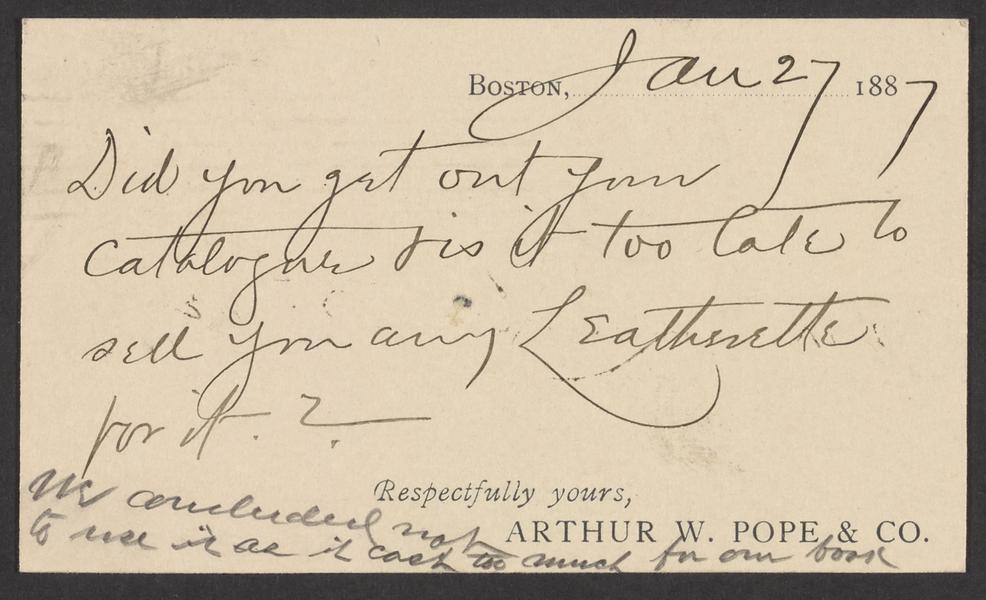 Boston, Jan 27 1887
Did you get out your
Catalogue & is it too late to
sell you any Leatherette
for it. ?
Respectfully yours,
ARTHUR W. POPE & CO.
We concluded not
to use it as it cost too much for our book